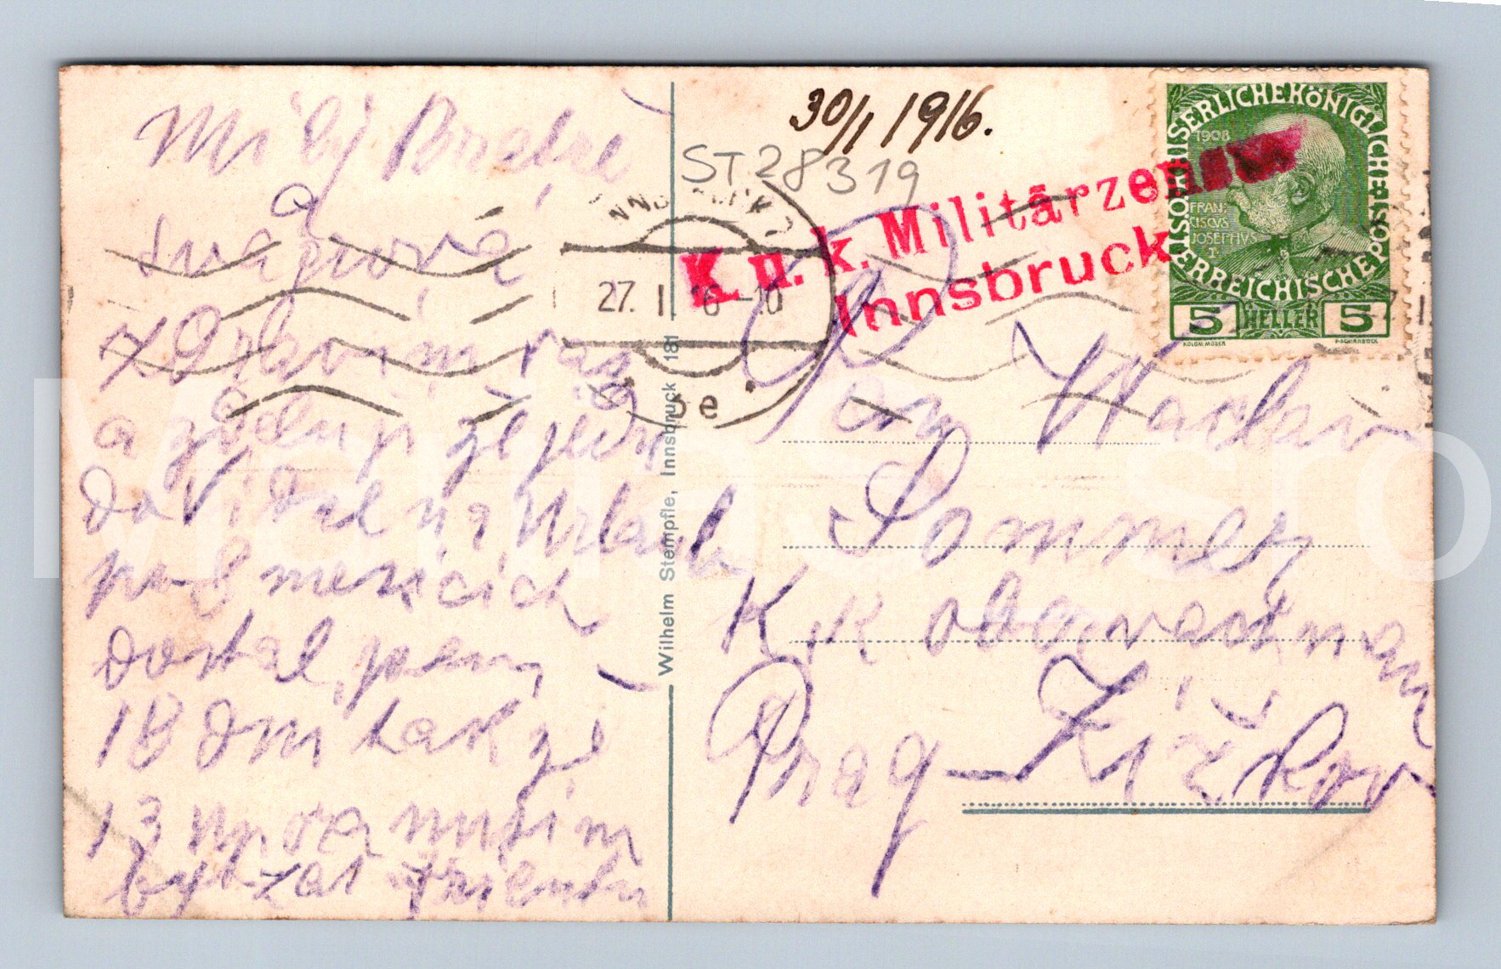 Milý Bratře
a
švagrová
zdravím vás
a zdeluji že jsem
na Urlaub
po 8 mesicich
dostal jsem
18 dni tak že
13 musim
byt zas
30/I 1916.
ST28319
INNSBRUCK
27. I 16 -10
K. u. k. Militärzensur
Innsbruck
KAISERLICHEKÖNIGLICHE
ÖSTERREICHISCHEPOST
1908
FRAN
CISCVS
JOSEPHVS
I.
5 HELLER 5
KOLOM. MOSER
F. SCHIRNBÖCK
Wilhelm Stempfle, Innsbruck 181
Pan Waclav
Sommer
K K
Prag - Žižkov
Mariasro